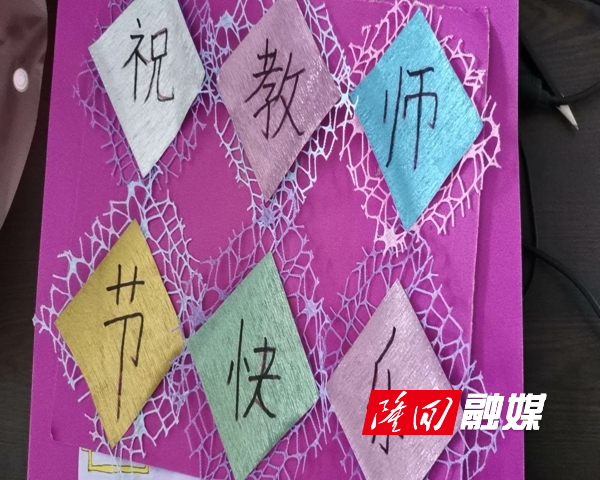 祝教师
节快乐
隆回融媒